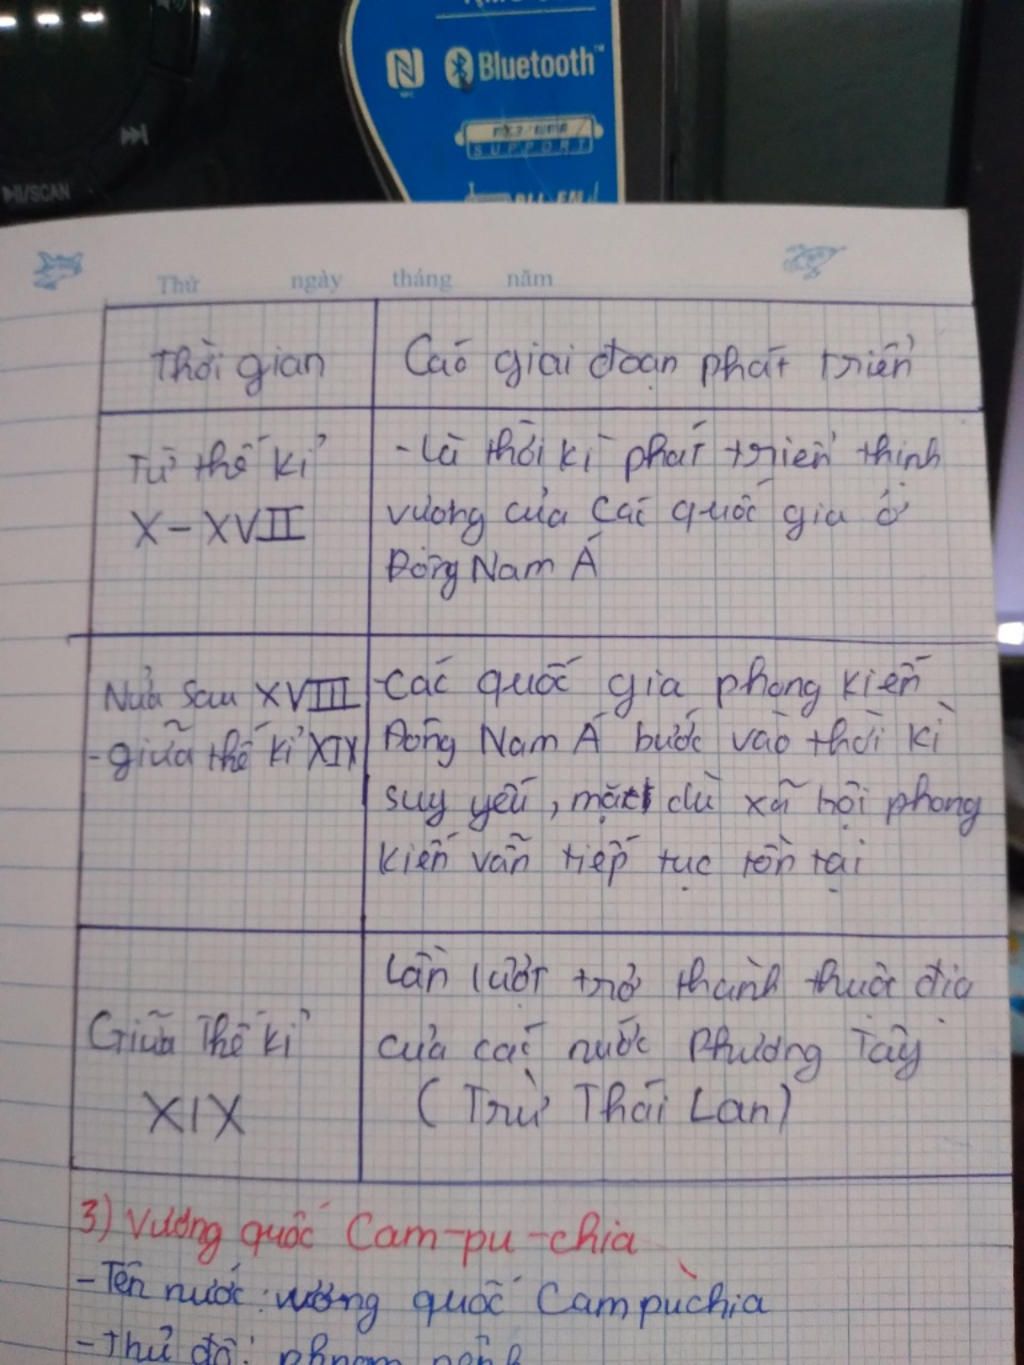 Bluetooth™
SUPPORT
⏯/SCAN
Thứ ngày tháng năm
Thời gian
Các giai đoạn phát triển
Từ thế kỉ
X – XVII
- Là thời kì phát triển thịnh
vương của các quốc gia ở
Đông Nam Á
Nửa sau XVIII
- giữa thế kỉ XIX
- Các quốc gia phong kiến
Đông Nam Á bước vào thời kì
suy yếu, mặt dù xã hội phong
kiến vẫn tiếp tục tồn tại
Giữa thế kỉ
XIX
Lần lượt trở thành thuộc địa
của các nước Phương Tây
(Trừ Thái Lan)
3) Vương quốc Cam-pu-chia
- Tên nước: vương quốc Campuchia
- Thủ đô: phnom pênh